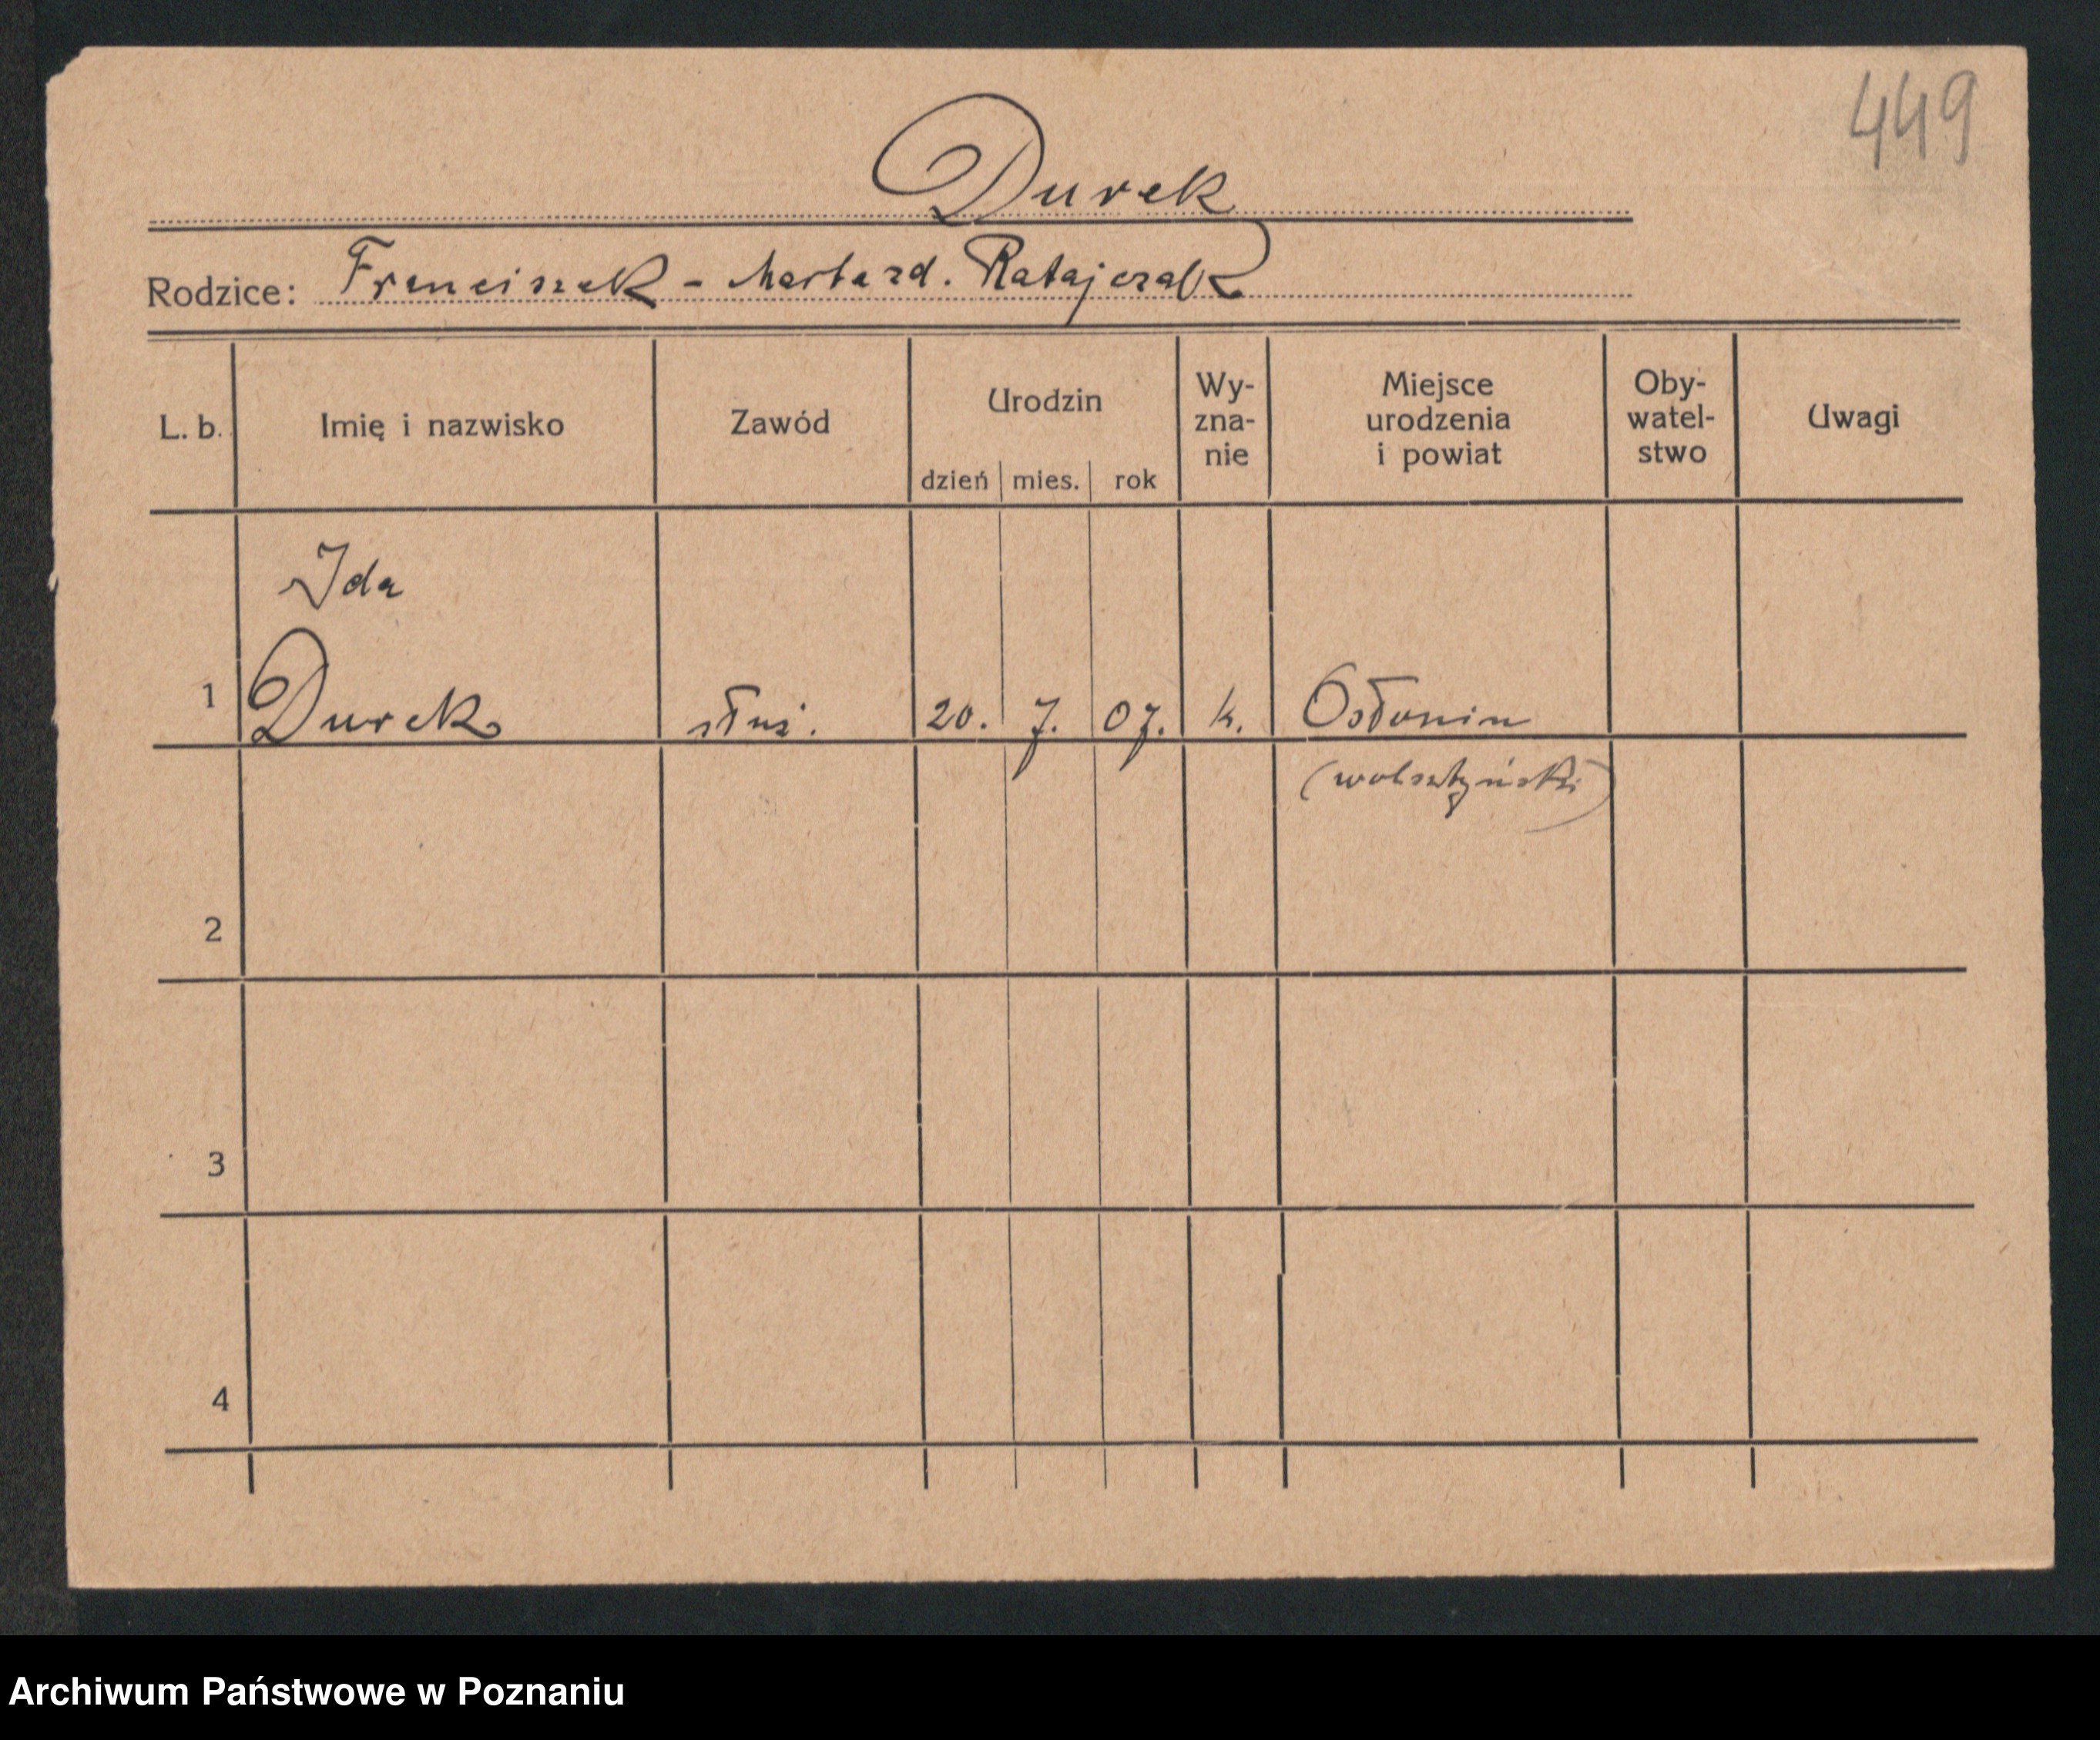 449
Durek
Rodzice: Franciszek - Marta zd. Ratajczak
L. b.
Imię i nazwisko
Zawód
Urodzin
dzień mies. rok
Wy-
zna-
nie
Miejsce
urodzenia
i powiat
Oby-
watel-
stwo
Uwagi
Ida
1 Durek służ. 20. 7. 07. k. Osłonin
(wolsztyński)
2
3
4
Archiwum Państwowe w Poznaniu